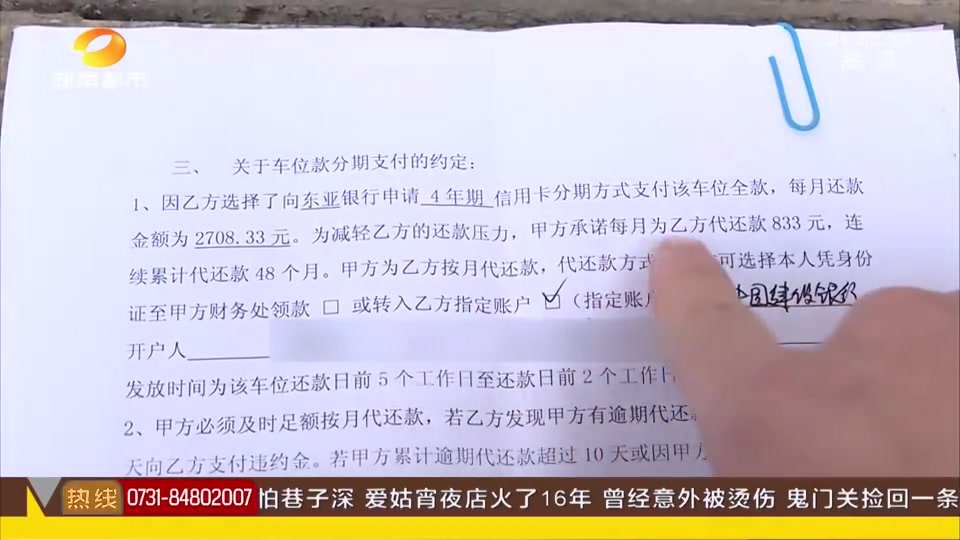 湖南都市
高清
三、 关于车位款分期支付的约定：
1、因乙方选择了向东亚银行申请 4 年期 信用卡分期方式支付该车位全款，每月还款
金额为 2708.33 元。为减轻乙方的还款压力，甲方承诺每月为乙方代还款 833 元，连
续累计代还款 48 个月。甲方为乙方按月代还款，代还款方式 可选择本人凭身份
证至甲方财务处领款 □ 或转入乙方指定账户 ☑（指定账户 中国建设银行
开户人
发放时间为该车位还款日前 5 个工作日至还款日前 2 个工作日
2、甲方必须及时足额按月代还款，若乙方发现甲方有逾期代还款
天向乙方支付违约金。若甲方累计逾期代还款超过 10 天或因甲方
热线 0731-84802007 怕巷子深 爱姑宵夜店火了16年 曾经意外被烫伤 鬼门关捡回一条